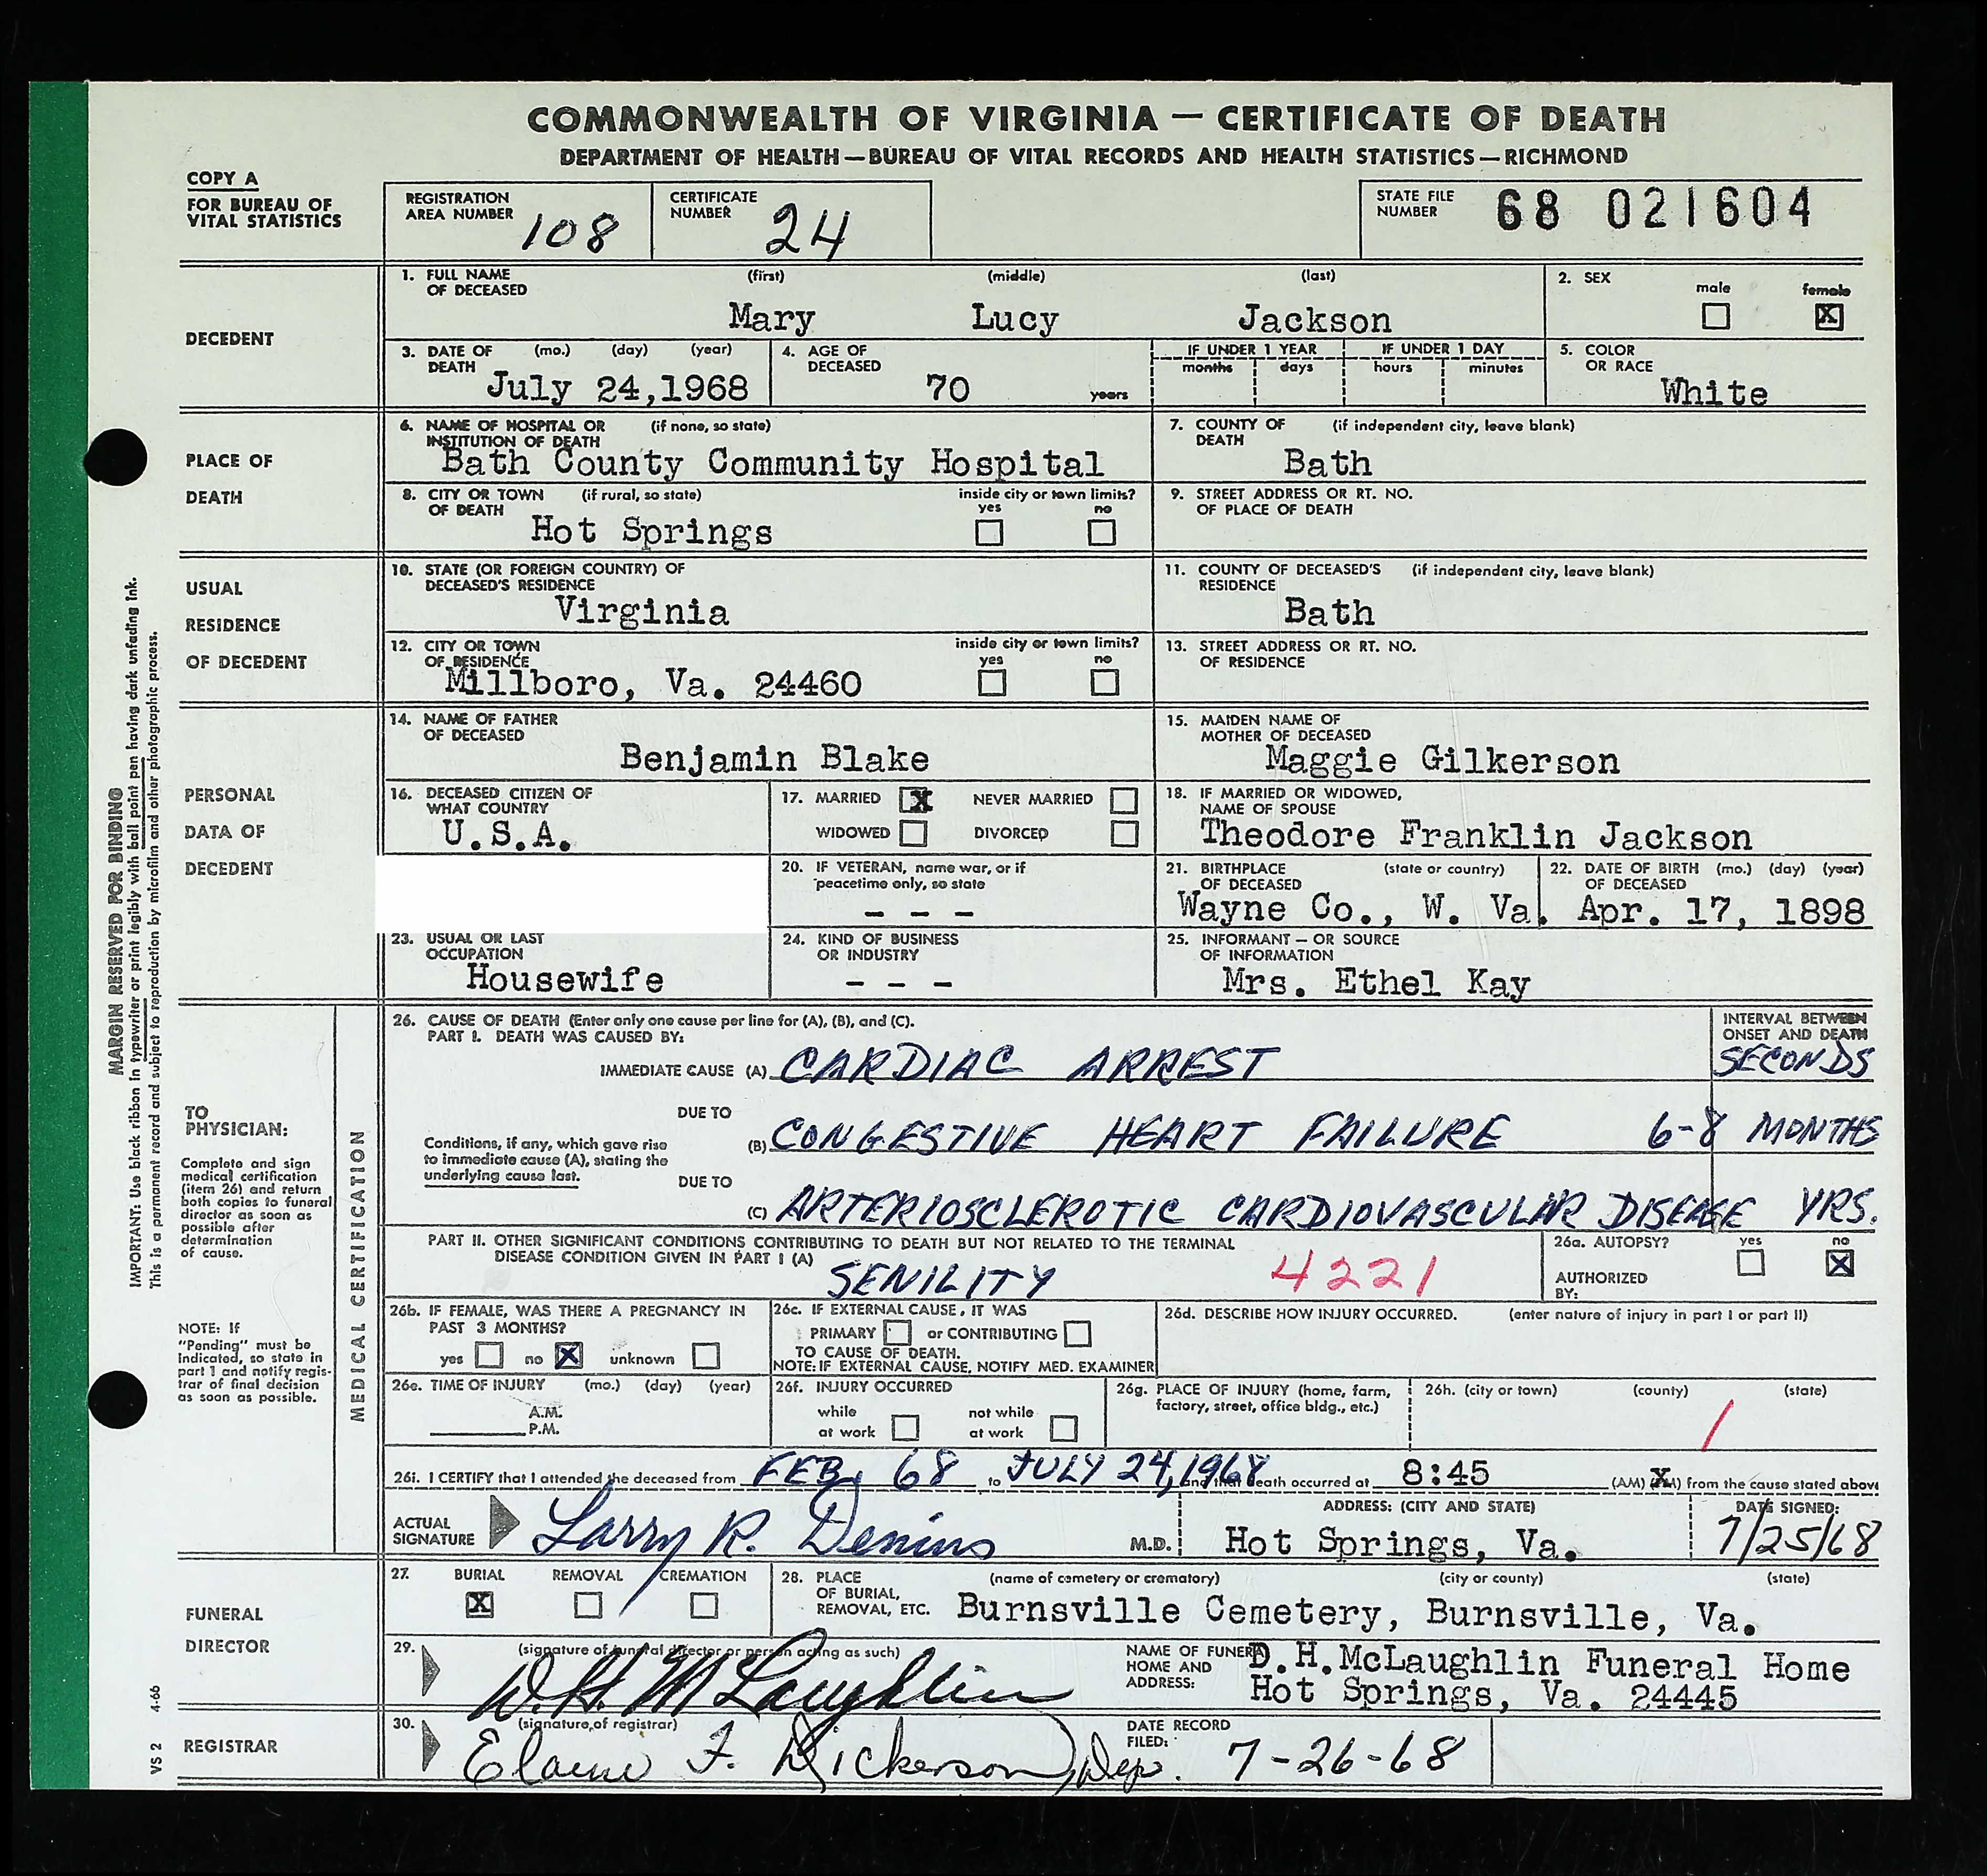 COMMONWEALTH OF VIRGINIA — CERTIFICATE OF DEATH
DEPARTMENT OF HEALTH—BUREAU OF VITAL RECORDS AND HEALTH STATISTICS—RICHMOND
COPY A
FOR BUREAU OF
VITAL STATISTICS
REGISTRATION
AREA NUMBER 108
CERTIFICATE
NUMBER 24
STATE FILE
NUMBER 68 021604
DECEDENT
1. FULL NAME (first) (middle) (last)
OF DECEASED
Mary Lucy Jackson
2. SEX
male female
X
3. DATE OF (mo.) (day) (year)
DEATH
July 24,1968
4. AGE OF
DECEASED
70 years
IF UNDER 1 YEAR IF UNDER 1 DAY
months days hours minutes
5. COLOR
OR RACE
White
PLACE OF
DEATH
6. NAME OF HOSPITAL OR (if none, so state)
INSTITUTION OF DEATH
Bath County Community Hospital
7. COUNTY OF (if independent city, leave blank)
DEATH
Bath
8. CITY OR TOWN (if rural, so state) inside city or town limits?
OF DEATH yes no
Hot Springs
9. STREET ADDRESS OR RT. NO.
OF PLACE OF DEATH
USUAL
RESIDENCE
OF DECEDENT
10. STATE (OR FOREIGN COUNTRY) OF
DECEASED'S RESIDENCE
Virginia
11. COUNTY OF DECEASED'S (if independent city, leave blank)
RESIDENCE
Bath
12. CITY OR TOWN inside city or town limits?
OF RESIDENCE yes no
Millboro, Va. 24460
13. STREET ADDRESS OR RT. NO.
OF RESIDENCE
PERSONAL
DATA OF
DECEDENT
14. NAME OF FATHER
OF DECEASED
Benjamin Blake
15. MAIDEN NAME OF
MOTHER OF DECEASED
Maggie Gilkerson
16. DECEASED CITIZEN OF
WHAT COUNTRY
U.S.A.
17. MARRIED X NEVER MARRIED
WIDOWED DIVORCED
18. IF MARRIED OR WIDOWED,
NAME OF SPOUSE
Theodore Franklin Jackson
20. IF VETERAN, name war, or if
peacetime only, so state
- - -
21. BIRTHPLACE (state or country)
OF DECEASED
Wayne Co., W. Va.
22. DATE OF BIRTH (mo.) (day) (year)
OF DECEASED
Apr. 17, 1898
23. USUAL OR LAST
OCCUPATION
Housewife
24. KIND OF BUSINESS
OR INDUSTRY
- - -
25. INFORMANT — OR SOURCE
OF INFORMATION
Mrs. Ethel Kay
MARGIN RESERVED FOR BINDING
IMPORTANT: Use black ribbon in typewriter or print legibly with ball point pen having dark unfading ink.
This is a permanent record and subject to reproduction by microfilm and other photographic process.
TO
PHYSICIAN:
Complete and sign
medical certification
(item 26) and return
both copies to funeral
director as soon as
possible after
determination
of cause.
NOTE: If
"Pending" must be
indicated, so state in
part 1 and notify regis-
trar of final decision
as soon as possible.
MEDICAL CERTIFICATION
26. CAUSE OF DEATH (Enter only one cause per line for (A), (B), and (C).
PART I. DEATH WAS CAUSED BY:
INTERVAL BETWEEN
ONSET AND DEATH
IMMEDIATE CAUSE (A) CARDIAC ARREST SECONDS
DUE TO
Conditions, if any, which gave rise
to immediate cause (A), stating the
underlying cause last.
(B) CONGESTIVE HEART FAILURE 6-8 MONTHS
DUE TO
(C) ARTERIOSCLEROTIC CARDIOVASCULAR DISEASE YRS.
PART II. OTHER SIGNIFICANT CONDITIONS CONTRIBUTING TO DEATH BUT NOT RELATED TO THE TERMINAL
DISEASE CONDITION GIVEN IN PART I (A)
SENILITY 4221
26a. AUTOPSY? yes no
X
AUTHORIZED
BY:
26b. IF FEMALE, WAS THERE A PREGNANCY IN
PAST 3 MONTHS?
yes no X unknown
26c. IF EXTERNAL CAUSE, IT WAS
PRIMARY or CONTRIBUTING
TO CAUSE OF DEATH.
NOTE: IF EXTERNAL CAUSE, NOTIFY MED. EXAMINER
26d. DESCRIBE HOW INJURY OCCURRED. (enter nature of injury in part I or part II)
26e. TIME OF INJURY (mo.) (day) (year)
A.M.
P.M.
26f. INJURY OCCURRED
while not while
at work at work
26g. PLACE OF INJURY (home, farm,
factory, street, office bldg., etc.)
26h. (city or town) (county) (state)
1
26i. I CERTIFY that I attended the deceased from FEB, 68 to JULY 24, 1968 and that death occurred at 8:45 (AM) (PM) from the cause stated above
ACTUAL
SIGNATURE Larry R. Denius M.D.
ADDRESS: (CITY AND STATE)
Hot Springs, Va.
DATE SIGNED:
7/25/68
FUNERAL
DIRECTOR
27. BURIAL REMOVAL CREMATION
X
28. PLACE (name of cemetery or crematory) (city or county) (state)
OF BURIAL,
REMOVAL, ETC. Burnsville Cemetery, Burnsville, Va.
29. (signature of funeral director or person acting as such)
D. H. McLaughlin
NAME OF FUNERAL
HOME AND
ADDRESS:
D.H.McLaughlin Funeral Home
Hot Springs, Va. 24445
REGISTRAR
30. (signature of registrar)
Elaine F. Dickerson, Dep.
DATE RECORD
FILED: 7-26-68
VS 2 4-66